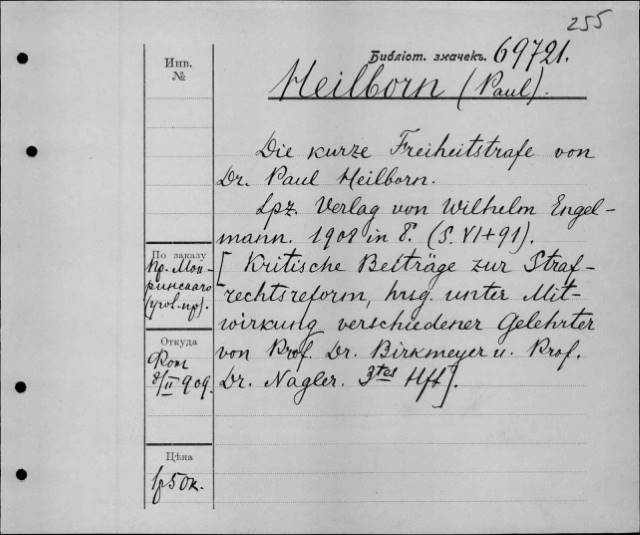 255
Библіот. значекъ. 69721.
Инв.
№
Heilborn (Paul).
Die kurze Freiheitstrafe von
Dr. Paul Heilborn.
Lpz. Verlag von Wilhelm Engel-
mann. 1908 in 8. (S. VI+91).
[Kritische Beiträge zur Straf-
rechtsreform, hrsg. unter Mit-
wirkung verschiedener Gelehrter
von Prof. Dr. Birkmeyer u. Prof.
Dr. Nagler. 3tes Hft].
По заказу
пр.
(угол. пр).
Откуда
8/II 909.
Цѣна
1р 50к.